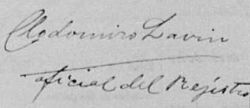 Clodomiro Lavin
oficial del Registro